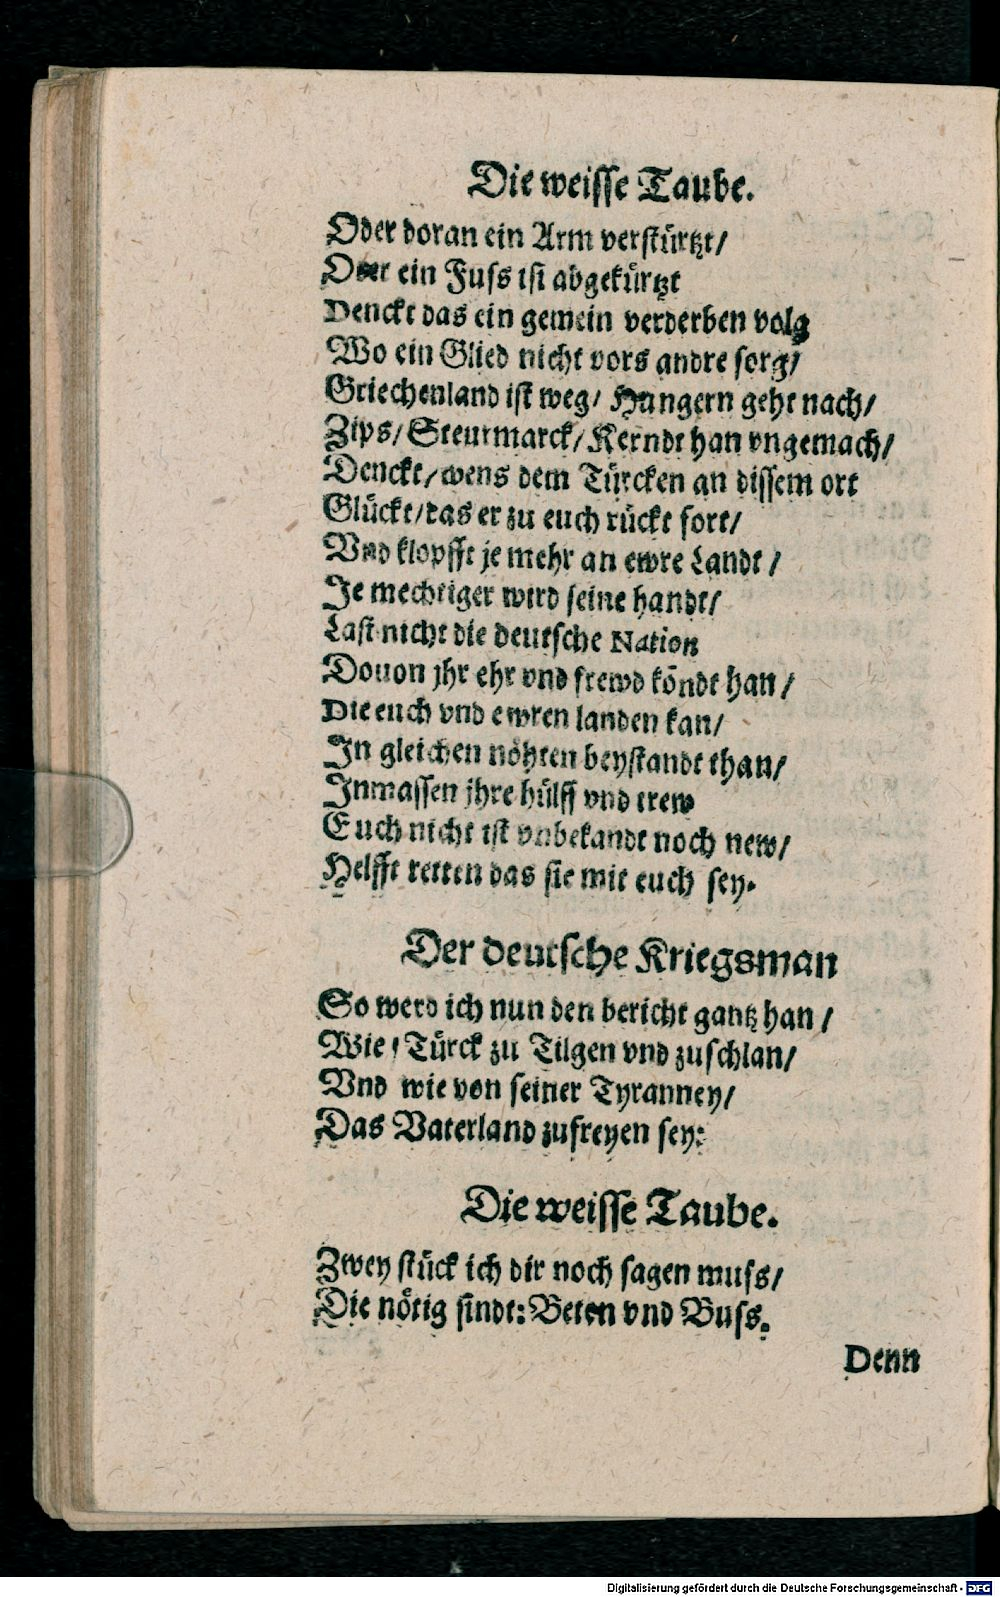 Die weisse Taube.
Oder doran ein Arm verstürtzt/
Oder ein Fuss ist abgekürtzt
Denckt das ein gemein verderben volg
Wo ein Glied nicht vors andre sorg/
Griechenland ist weg/ Hungern geht nach/
Zips/ Steurmarck/ Kerndt han vngemach/
Denckt/ wens dem Türcken an dissem ort
Glückt/ das er zu euch rückt fort/
Vnd klopfft je mehr an ewre Landt /
Je mechtiger wird seine handt/
Last nicht die deutsche Nation
Douon jhr ehr vnd frewd köndt han /
Die euch vnd ewren landen kan/
In gleichen nöhten beystandt than/
Inmassen jhre hülff vnd trew
Euch nicht ist vnbekandt noch new/
Helfft retten das sie mit euch sey.
Der deutsche Kriegsman
So werd ich nun den bericht gantz han /
Wie / Türck zu Tilgen vnd zuschlan/
Vnd wie von seiner Tyranney/
Das Vaterland zufreyen sey:
Die weisse Taube.
Zwey stück ich dir noch sagen muss/
Die nötig sindt: Beten vnd Buss.
Denn
Digitalisierung gefördert durch die Deutsche Forschungsgemeinschaft - DFG